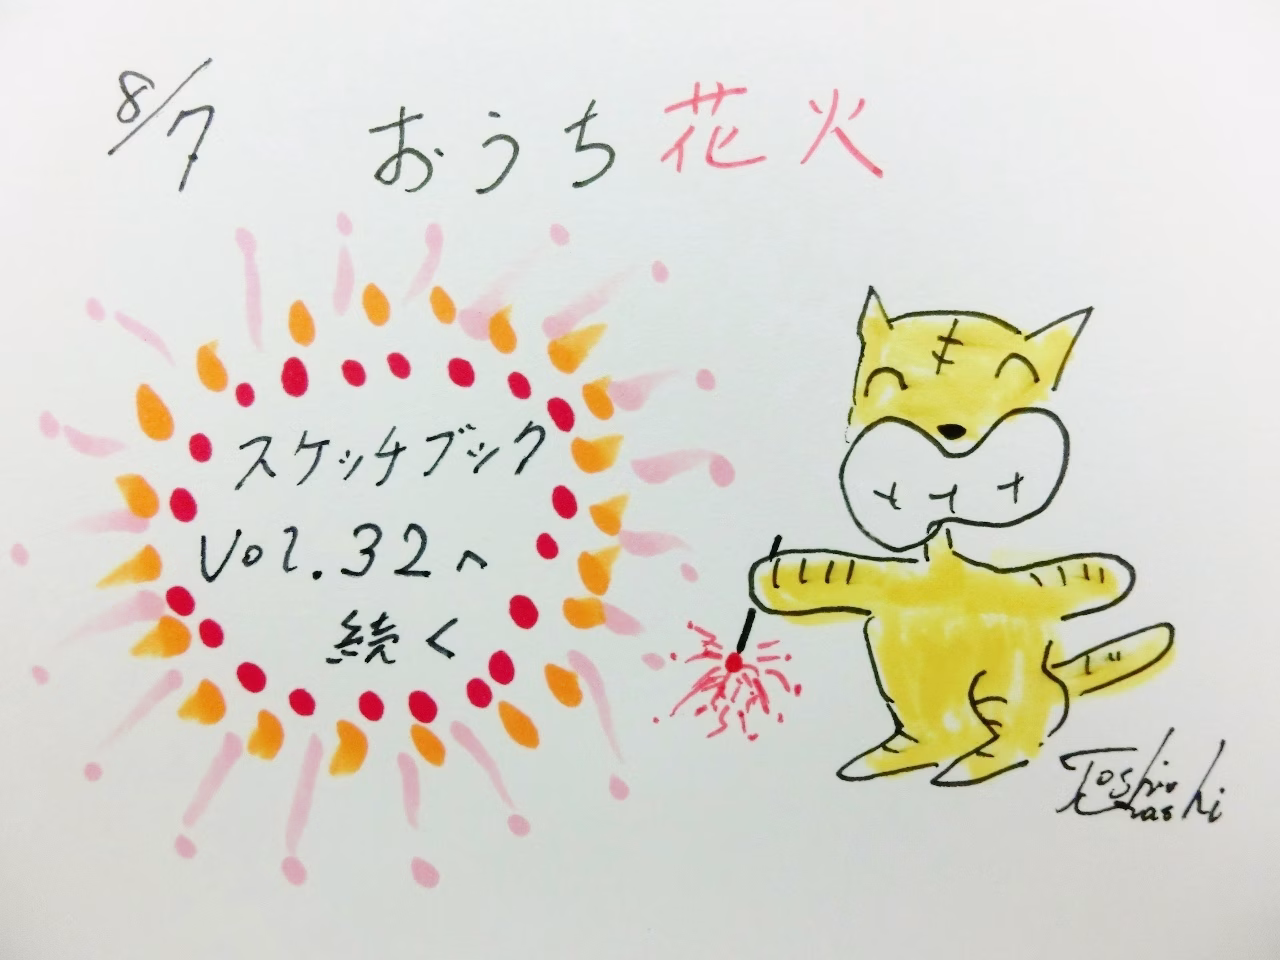 8/7 おうち花火
スケッチブック
Vol.32へ
続く
Toshi